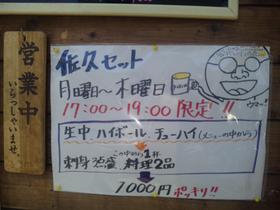 営業中
いらっしゃいませ。
佐久セット
月曜日～木曜日
17:00～19:00 限定!!
生中 ハイボール チューハイ(メニューの中から)
この中から1杯
刺身3点盛 料理2品
1000円ポッキリ!!
ウマー!